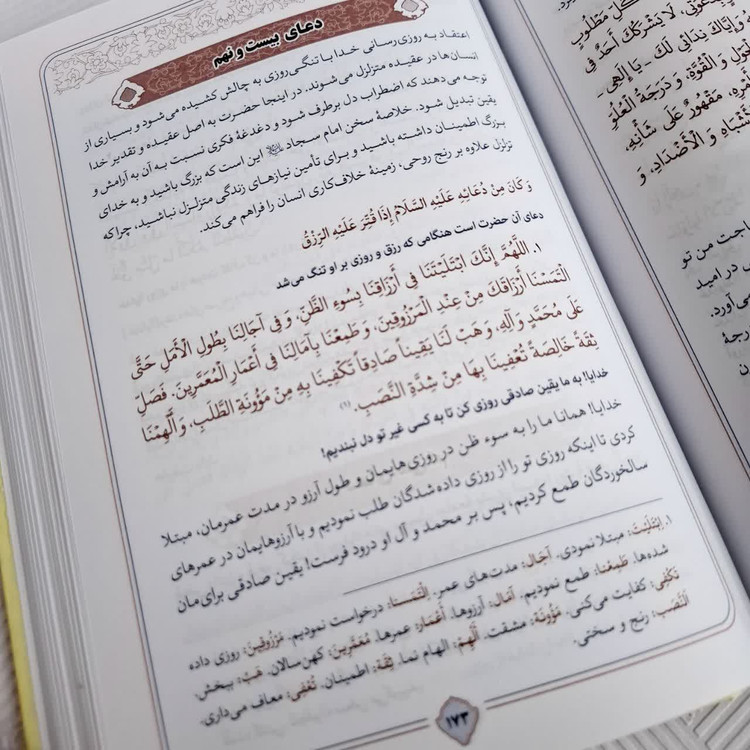 دعای بیست و نهم
اعتقاد به روزی‌رسانی خدا با تنگی روزی به چالش کشیده می‌شود و بسیاری از
انسان‌ها در عقیده متزلزل می‌شوند. در اینجا حضرت به اصل عقیده و تقدیر خدا
توجه می‌دهند که اضطراب دل برطرف شود و دغدغهٔ فکری نسبت به آن به آرامش و
یقین تبدیل شود. خلاصهٔ سخن امام سجاد این است که بزرگ باشید و به خدای
بزرگ اطمینان داشته باشید و برای تأمین نیازهای زندگی متزلزل نباشید، چرا که
تزلزل علاوه بر رنج روحی، زمینهٔ خلاف‌کاری انسان را فراهم می‌کند.
وَ کَانَ مِنْ دُعَائِهِ عَلَیْهِ السَّلَامُ إِذَا قُتِّرَ عَلَیْهِ الرِّزْقُ
دعای آن حضرت است هنگامی که رزق و روزی بر او تنگ می‌شد
۱. اللَّهُمَّ إِنَّكَ ابْتَلَيْتَنَا فِي أَرْزَاقِنَا بِسُوءِ الظَّنِّ، وَ فِي آجَالِنَا بِطُولِ الْأَمَلِ حَتَّى
الْتَمَسْنَا أَرْزَاقَكَ مِنْ عِنْدِ الْمَرْزُوقِينَ، وَ طَمِعْنَا بِآمَالِنَا فِي أَعْمَارِ الْمُعَمَّرِينَ. فَصَلِّ
عَلَى مُحَمَّدٍ وَ آلِهِ، وَ هَبْ لَنَا يَقِيناً صَادِقاً تَكْفِينَا بِهِ مِنْ مَؤُونَةِ الطَّلَبِ، وَ أَلْهِمْنَا
ثِقَةً خَالِصَةً تُعْفِينَا بِهَا مِنْ شِدَّةِ النَّصَبِ. (۱)
خدایا! به ما یقین صادقی روزی کن تا به کسی غیر تو دل نبندیم!
خدایا! همانا ما را به سوء ظن در روزی‌هایمان و طول آرزو در مدت عمرمان، مبتلا
کردی تا اینکه روزی تو را از روزی داده‌شدگان طلب نمودیم و با آرزوهایمان در عمرهای
سالخوردگان طمع کردیم؛ پس بر محمد و آل او درود فرست! یقین صادقی برای‌مان
۱. اِبْتَلَیْتَ: مبتلا نمودی. آجَال: مدت‌های عمر. اِلْتَمَسْنا: درخواست نمودیم. مَرْزُوقینَ: روزی داده
شده‌ها. طَمِعْنا: طمع نمودیم. آمَال: آرزوها. أَعْمَار: عمرها. مُعَمَّرینَ: کهن‌سالان. هَبْ: ببخش.
تَکْفِی: کفایت می‌کنی. مَؤُونَة: مشقت. أَلْهِمْ: الهام نما. ثِقَة: اطمینان. تُعْفِی: معاف می‌داری.
النَّصَب: رنج و سختی.
۱۷۳
كُلِّ مَطْلُوبٍ
لَا يَشْرَكُكَ أَحَدٌ فِي
وَ إِيَّاكَ نِدَائِي لَكَ - يَا إِلَهِي -
وَ الْقُوَّةِ، وَ دَرَجَةُ الْعُلُوِّ
مَقْهُورٌ عَلَى شَأْنِهِ،
وَ الْأَضْدَادِ، وَ
حاجت من تو
در امید